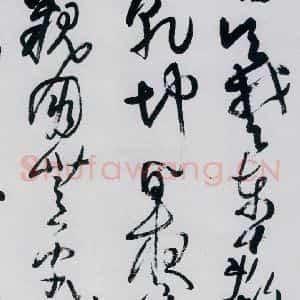 吳楚東南坼
乾坤日夜
親朋無一字
Shufawang.CN